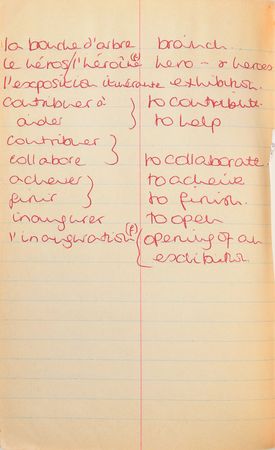 la bouche d'arbre branch
le héros/l'héroïne (f) hero - heroes
l'exposition itinérante exhibition.
contribuer à } to contribute.
aider } to help
contribuer }
collabore } to collaborate
achever } to acheive
finir } to finish.
inaugurer to open
l'inauguration (f) (opening of an
exhibition.